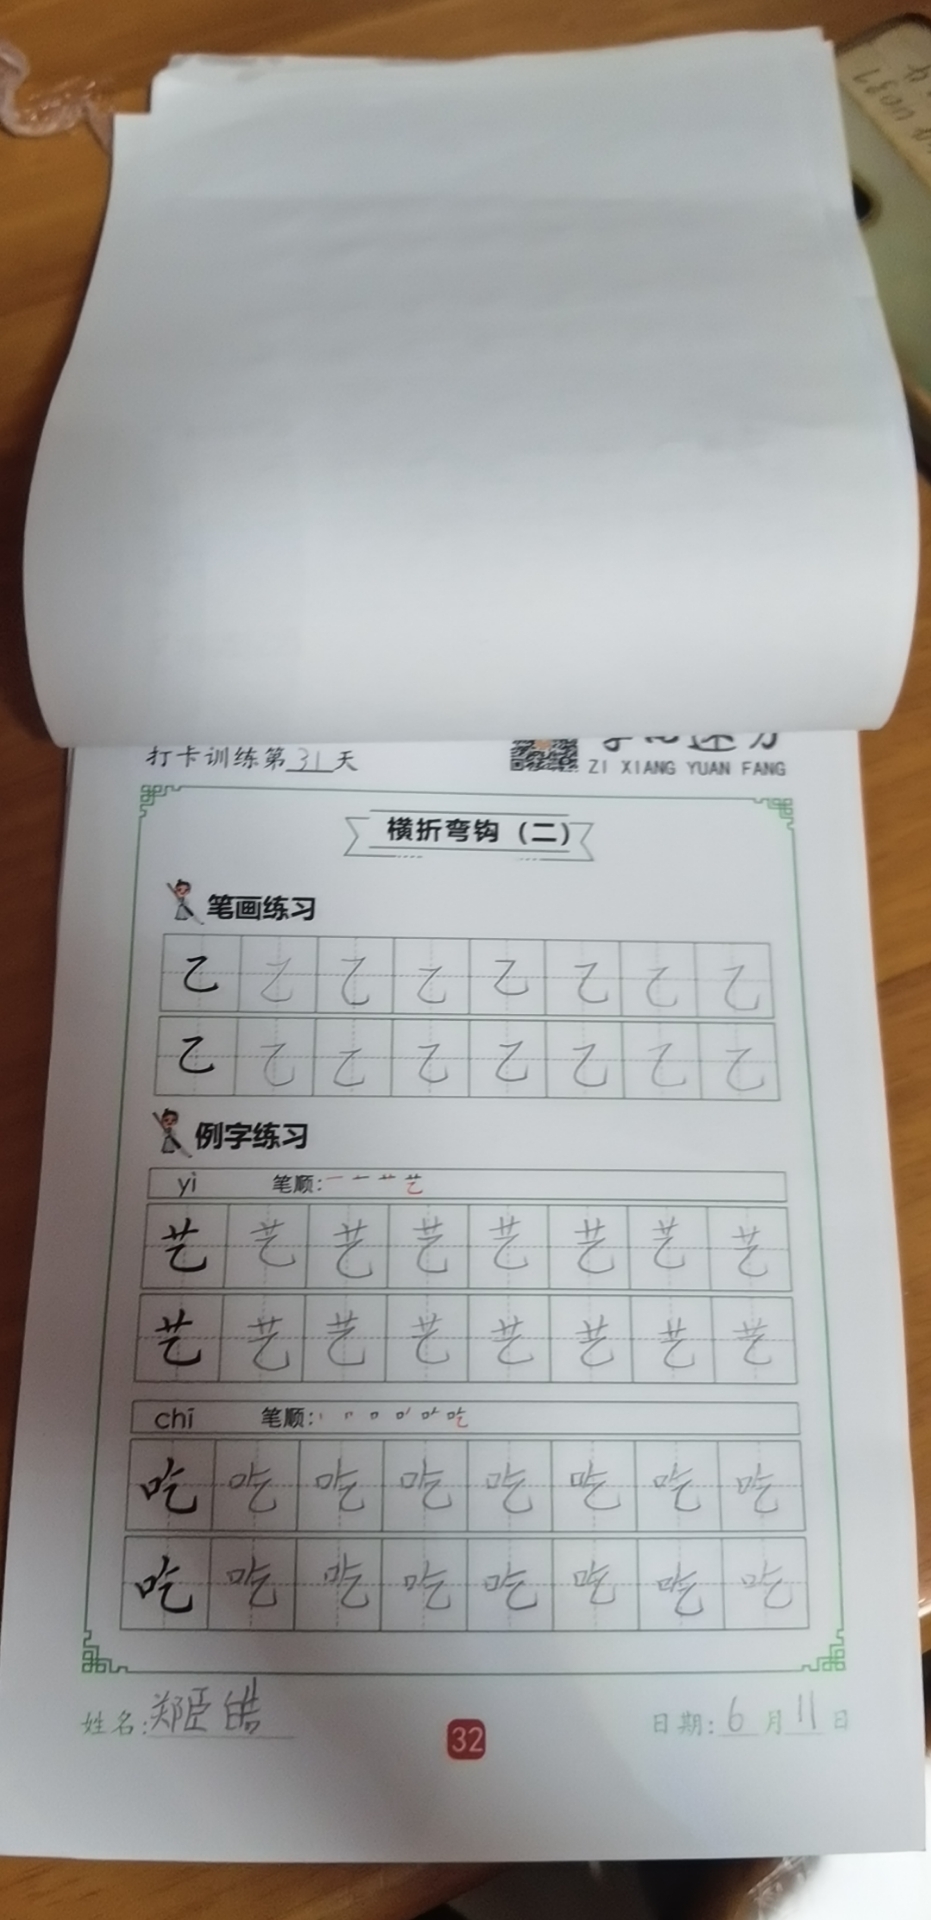 打卡训练第31天
ZI XIANG YUAN FANG
横折弯钩（二）
笔画练习
乙 乙 乙 乙 乙 乙 乙 乙
乙 乙 乙 乙 乙 乙 乙 乙
例字练习
yì 笔顺:
艺 艺 艺 艺 艺 艺 艺 艺
艺 艺 艺 艺 艺 艺 艺 艺
chī 笔顺:
吃 吃 吃 吃 吃 吃 吃 吃
吃 吃 吃 吃 吃 吃 吃 吃
姓名:郑臣皓
32
日期:6月11日